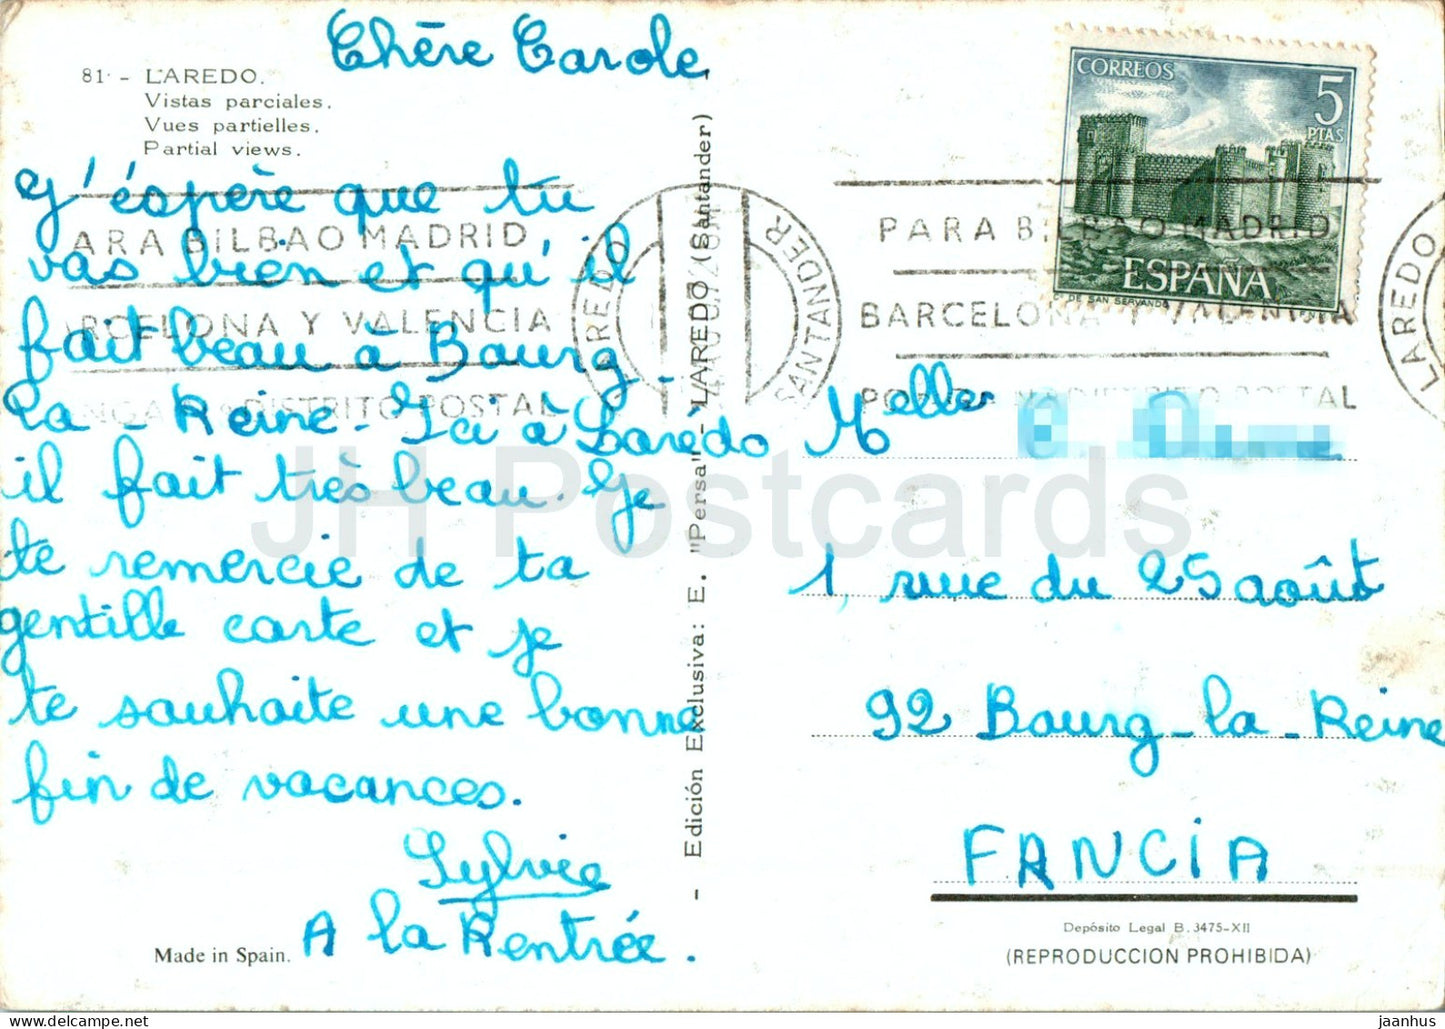 Chère Carole
81 - LAREDO.
Vistas parciales.
Vues partielles.
Partial views.
J'éspère que tu
vas bien et qu'il
fait beau à Bourg-
la-Reine. Ici à Larédo
il fait très beau. Je
te remercie de ta
gentille carte et je
te souhaite une bonne
fin de vacances.
Sylvie
A la Rentrée.
Made in Spain.
ARA BILBAO MADRID
ARCELONA Y VALENCIA
DISTRITO POSTAL
LAREDO
SANTANDER
- Edición Exclusiva: E. "Persa" - LAREDO (Santander)
CORREOS
5
PTAS
ESPAÑA
Cº DE SAN SERVANDO
PARA BILBAO MADRID
BARCELONA Y VALENCIA
POSTAL
LAREDO
Melle
1, rue du 25 août
92 Bourg-la-Reine
FANCIA
Depósito Legal B. 3475-XII
(REPRODUCCION PROHIBIDA)
JH Postcards
jaanhus